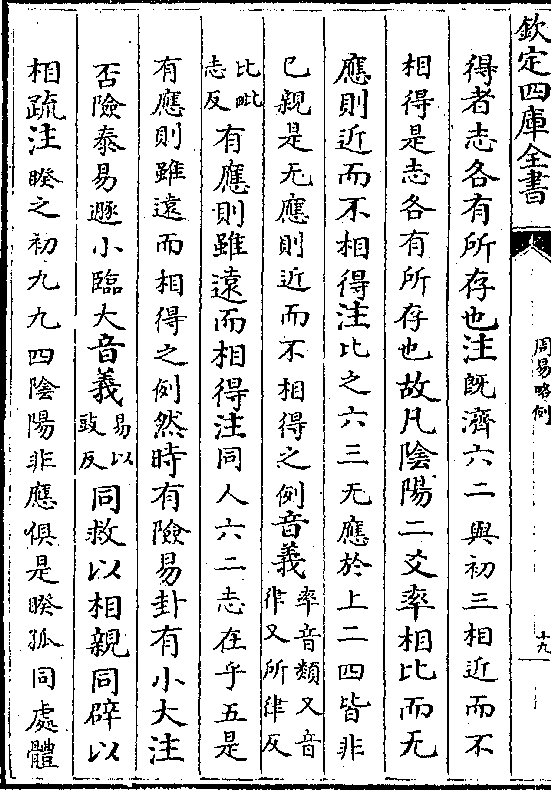 欽定四庫全書
周易略例
十九
得者志各有所存也注既濟六二與初三相近而不
相得是志各有所存也故凡陰陽二爻率相比而无
應則近而不相得注比之六三无應於上二四皆非
已親是无應則近而不相得之例音義率音類又音
律又所律反
比毗
志反有應則雖遠而相得注同人六二志在乎五是
有應則雖遠而相得之例然時有險易卦有小大注
否險泰易遯小臨大音義易以
豉反同救以相親同辟以
相疏注睽之初九九四陰陽非應俱是睽孤同處體